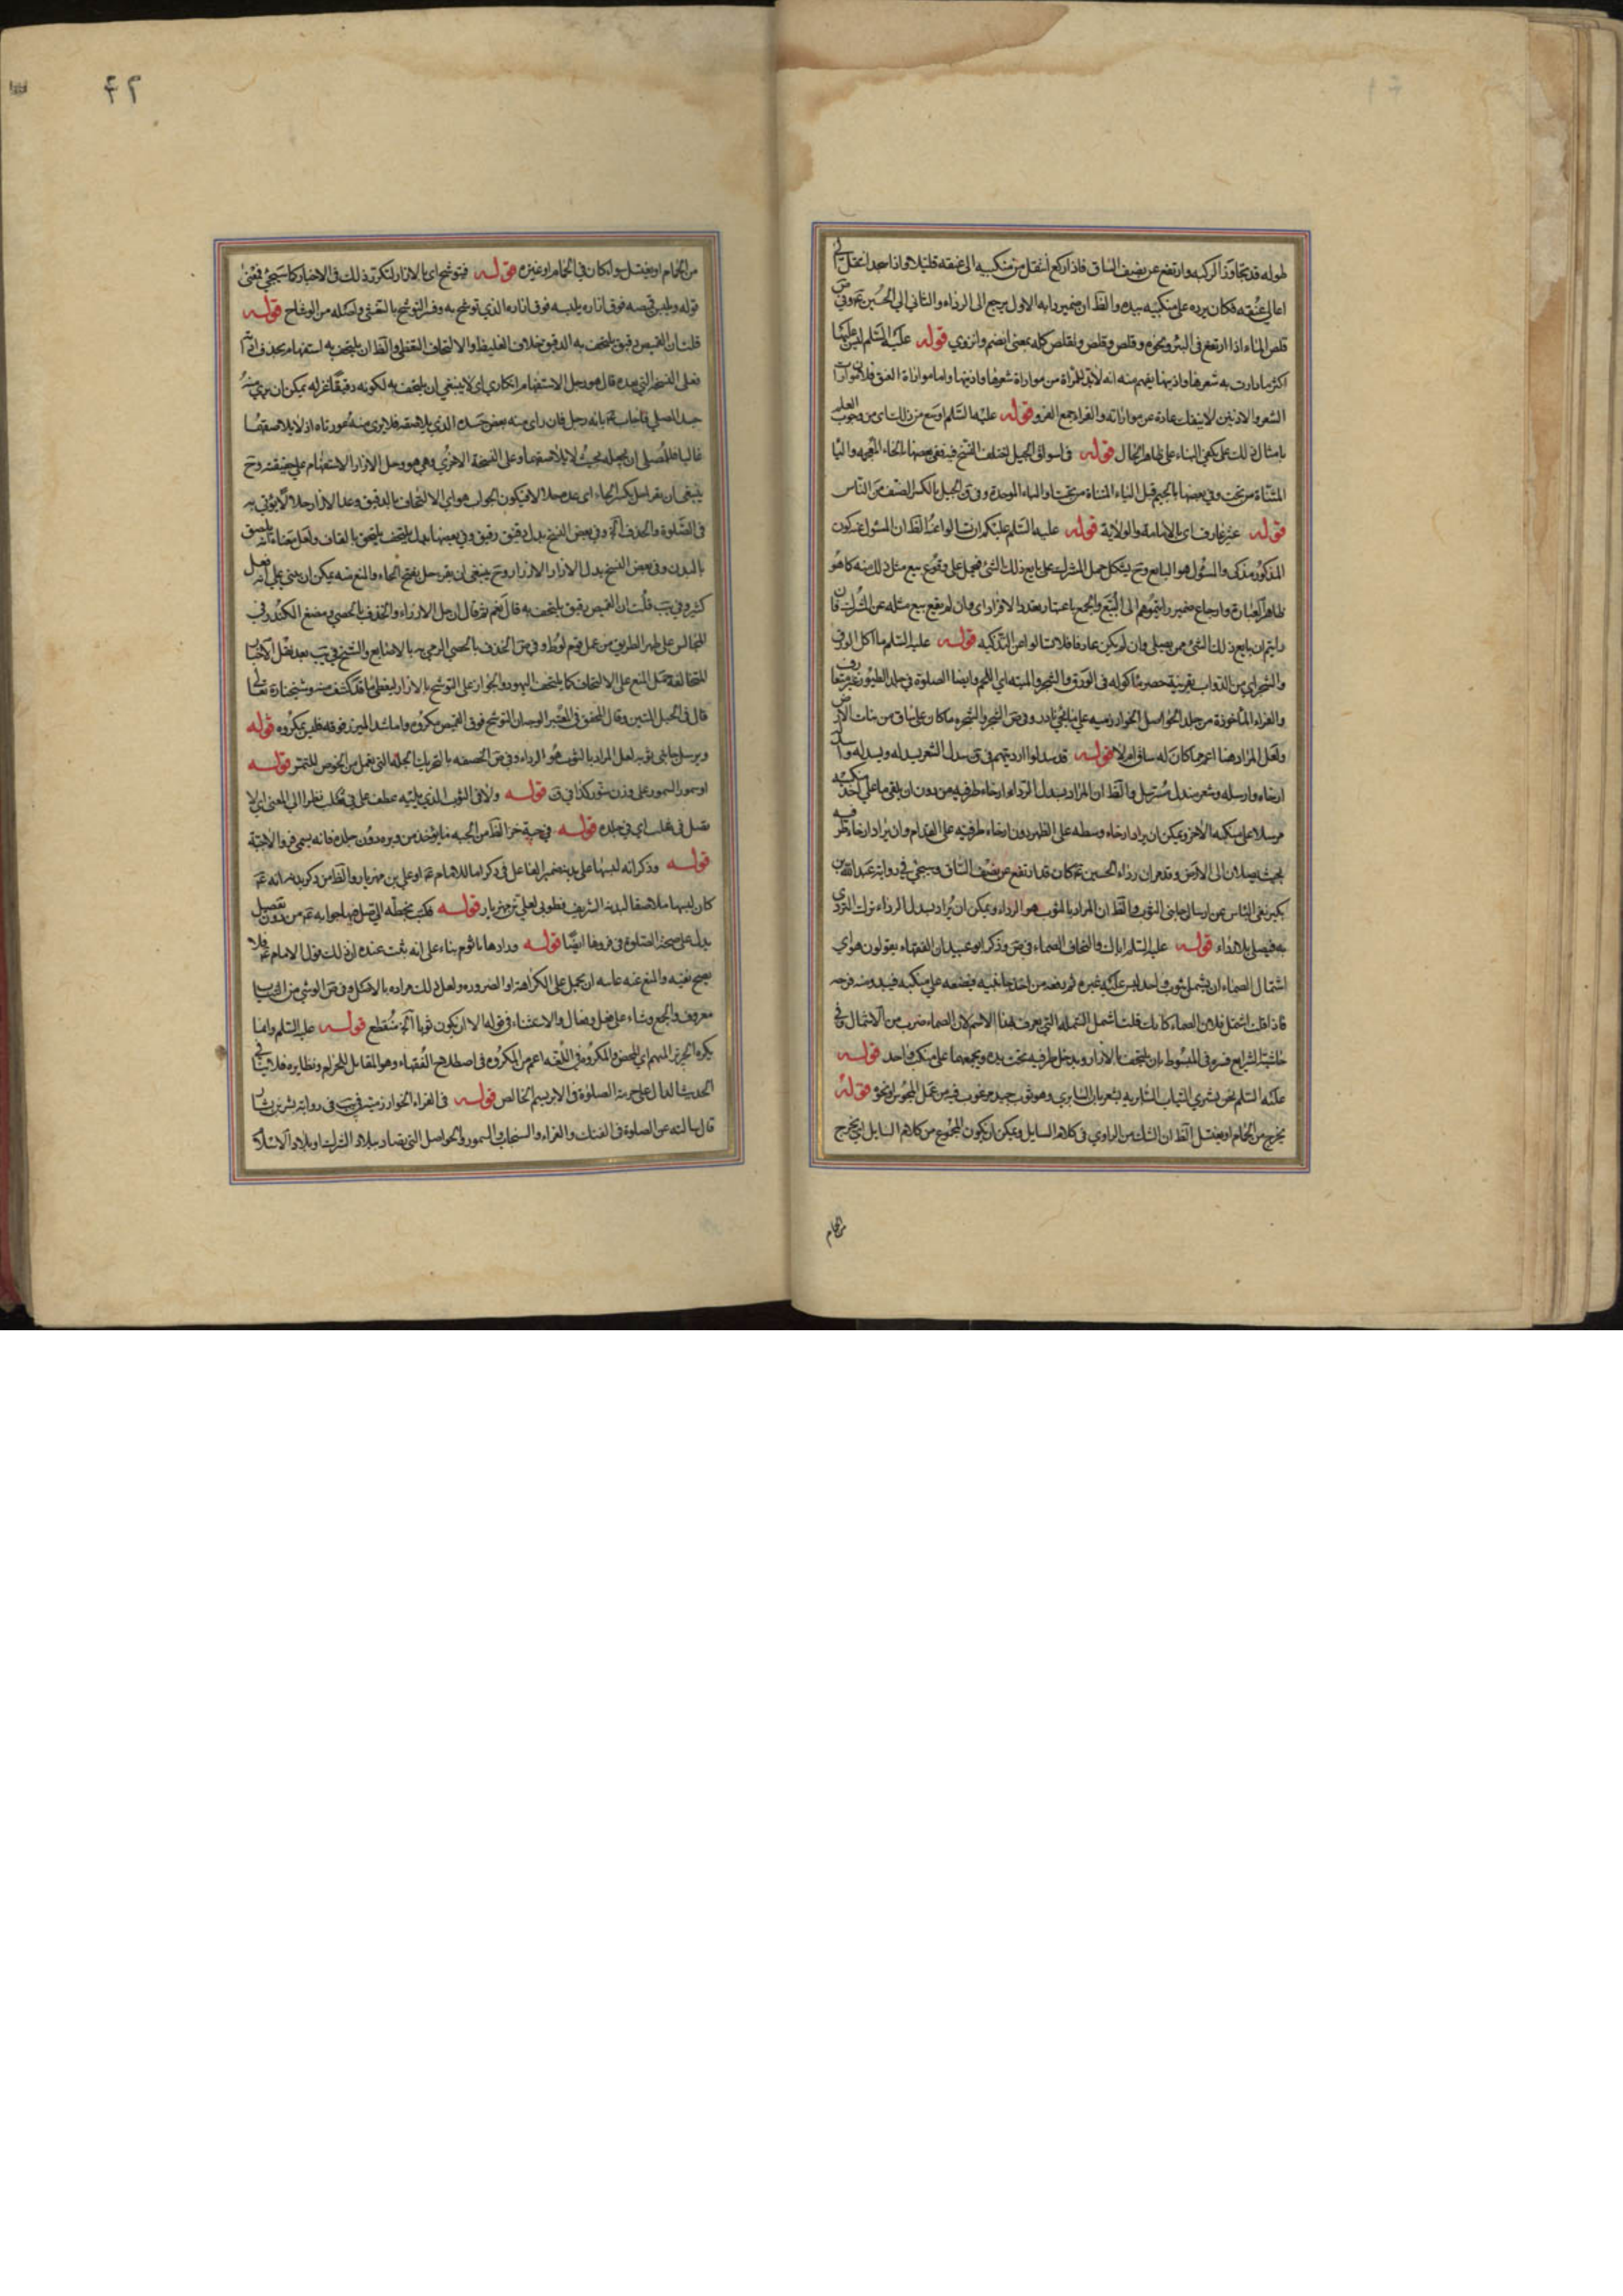 طوله قد تجاوز الركبه وارتفع عن نصف الساق فاذا ركع انتقل من منكبيه الى عنقه قليلا واذا سجد انتقل الى
اعالي عنقه فكان يرده على منكبيه بيده والظ ان ضمير ردا به الاول يرجع الى الرداء والثاني الى الحسين ع وفي ص
قلص الماء اذا ارتفع في البئر ونحوه وقلص وقلص وتقلص كله بمعنى انضم وانزوي قوله عليه السلم ليس عليها
اكثر ما وارت به شعرها واذنيها يفهم منه انه لا بد للمراة من مواراة شعرها واذنيها واما مواراة العنق فلان موارات
الشعر والاذنين لا ينفك عادة عن مواراته والفراء جمع الفرو قوله عليه السلم اوسع من ذلك اي من وجوب العلم
بامثال ذلك بل يكفي البناء على ظاهر الحال قوله في اسواق الجبل اختلف النسخ فيه ففي بعضها بالخاء المعجمه والياء
المثناة من تحت وفي بعضها بالجيم قبل الياء المثناة من تحت او الباء الموحدة وفي ق الجيل بالكسر الصنف من الناس
قوله غير عارف اي بالامامة والولاية قوله عليه السلم عليكم ان تسالوا عنه الظ ان المسئول عنه كون
المذكور مذكى والمسئول هو البايع وح يشكل حمل المشرك على بايع ذلك الشئ فيحمل على وقوع بيع مثل ذلك منه كما هو
ظاهر العبارة وارجاع ضمير رايتموهم الى
رايتم ان بايع ذلك الشئ ممن يصلي وان لم يكن عارفا فلا تسالوا عن التذكيه قوله عليه السلم ما اكل الورق
والشجر اي من الدواب بقرينة حصر ماكوله في الورق والشجر والميته اي اللحم وايضا الصلوة في جلد الطيور غير متعارف
والفراء الماخوذة من جلد الحواصل الخوارزميه على ما قيل نادر وفي ص الشجر والشجره ما كان على ساق من نبات الارض
ولعل المراد هنا اعم مما كان له ساق ام لا قوله قد سدلوا ارديتهم في ق سدل الشعر يسدله ويسدله واسدله
ارخاه وارسله وشعر منسدل مسترسل والظ ان المراد بسدل الرداء ارخاء طرفيه من دون ان يلقي ما على احد منكبيه
مرسلا على منكبه الاخر ويمكن ان يراد ارخاء وسطه على الظهر دون ارخاء طرفيه على القدام وان يراد ارخاء طرفيه
بحيث يصلان الى الارض وقد مر ان رداء الحسين ع كان قد ارتفع عن نصف الساق وسيجئ في رواية عبد الله بن
بكير نفي الباس عن ارسال جانبي الثوب والظ ان المراد بالثوب هو الرداء ويمكن ان يراد بسدل الرداء ترك التردي
به فيصلي بلا رداء قوله عليه السلم اياك والتحاف الصماء في ص وذكر ابو عبيد ان الفقهاء يقولون هو اي
اشتمال الصماء ان يشتمل بثوب واحد ليس عليه غيره ثم يرفعه من احد جانبيه فيضعه على منكبه فيبدو منه فرجه
فاذا قلت اشتمل فلان الصماء كانك قلت اشتمل الشملة التي يعرف بهذا الاسم لان الصماء ضرب من الاشتمال وفي
حاشية الشرايع فسره في المبسوط بان يلتحف بالازار ويدخل طرفيه تحت يده ويجمعهما على منكب واحد قوله
عليه السلم نحن نشتري الثياب السابريه الثوب السابري وهو ثوب جيد مرغوب فيه من عمل المجوس او نحو قوله
يخرج من الحمام او يغتسل الظ ان الشك من الراوي في كلام السايل ويمكن ان يكون المجموع من كلام السايل اي يخرج
من الحمام
٤٢
من الحمام او يغتسل سواء كان في الحمام او غيره قوله فيتوشح اي بالازار لتكرر ذلك في الاخبار كما سيجئ فمعنى
قوله ويلبس قميصه فوق ازاره يلبسه فوق ازاره الذي توشح به وفسر التوشح بالتغشي واصله من الوشاح قوله
قلت ان القميص رقيق يلتحف به الدقيق بخلاف الغليظ والالتحاف التغطي والظ ان يلتحف به استفهام بحذف اداته
فعلى النسخة التي عنده قال هو وحل الاستفهام انكاري اي لا ينبغي ان يلتحف به لكونه رقيقا
جسد المصلي فاجاب ع بانه رجل فان راي منه بعض جسده الذي يلاصقه فلا يرى منه عورتاه اذ لا يلاصقهما
غالبا فللمصلي ان يجعله بحيث لا يلاصقهما وعلى النسخة الاخرى وهي هو وحل الازار الاستفهام على حقيقته وح
ينبغي ان يقرا حل بكسر الحاء
في الصلوة والحذف الخ وفي بعض النسخ بدل دقيق رقيق وفي بعضها بدل يلتحف يلتحق بالقاف ولعل معناه انه يلصق
بالبدن وفي بعض النسخ بدل الازار الازرار وح ينبغي ان يقرء حل بفتح الحاء والمنع منه يمكن ان
كثير وفي يب قلت ان القميص رقيق يلتحف به قال نعم ثم قال ان حل الازرار والخذف بالحصى ومضغ الكندر في
المجالس على ظهر الطريق من عمل قوم لوط وفي ص الخذف بالحصى الرمي به بالاصابع والشيخ في يب بعد نقل الاخبار
المتخالفة حمل المنع على الالتحاف كما يلتحف اليهود والجواز على التوشح بالازار ليغطي ما قد كشف منه
قال في الحبل المتين وقال المحقق في المعتبر الوجه ان التوشح فوق القميص مكروه واما شد الميزر فوقه فليس بمكروه قوله
ويرسل جانبي ثوبه لعل المراد بالثوب هو الرداء وفي ص الخصفه بالتحريك الجلة التي تعمل من الخوص للتمر قوله
او سمور السمور على وزن تنور كذا في ق قوله ولا في الثوب الذي يليه عطف على في ثعلب نظرا الى المعنى اي لا
تصل في ثعلب اي في جلده قوله في جبة خز الظ من الجبه ما يؤخذ من وبره دون جلده فانه يسمى فروا لا جبة
قوله وذكر انه لبسها على بدنه ضمير الفاعل في ذكر اما للامام ع او علي بن مهزيار
كان لبسها ملاصقا لبدنه الشريف فطوبى لعلي بن مهزيار قوله فكتب بخطه الي صل فيها جوابه ع من دون تفصيل
يدل على صحة الصلوة في فروها ايضا قوله
يصح نفيه والمنع عنه
معروف والجمع وشاء على فعل وفعال والاستثناء في قوله الا ان يكون ثوبا الخ منقطع قوله عليه السلم وانما
يكره الحرير المبهم اي المحض والمكروه في اللغه اعم من المكروه في اصطلاح الفقهاء وهو المقابل للحرام ونظايره فلا ينافي
الحديث الدال على حرمة الصلوة في الابريسم الخالص قوله في الفراء الخوارزميه في يب في رواية بشر بن بشار
قال سالته عن الصلوة في الفنك والفراء والسنجاب والسمور والحواصل التي تصاد ببلاد الشرك او بلاد الاسلام